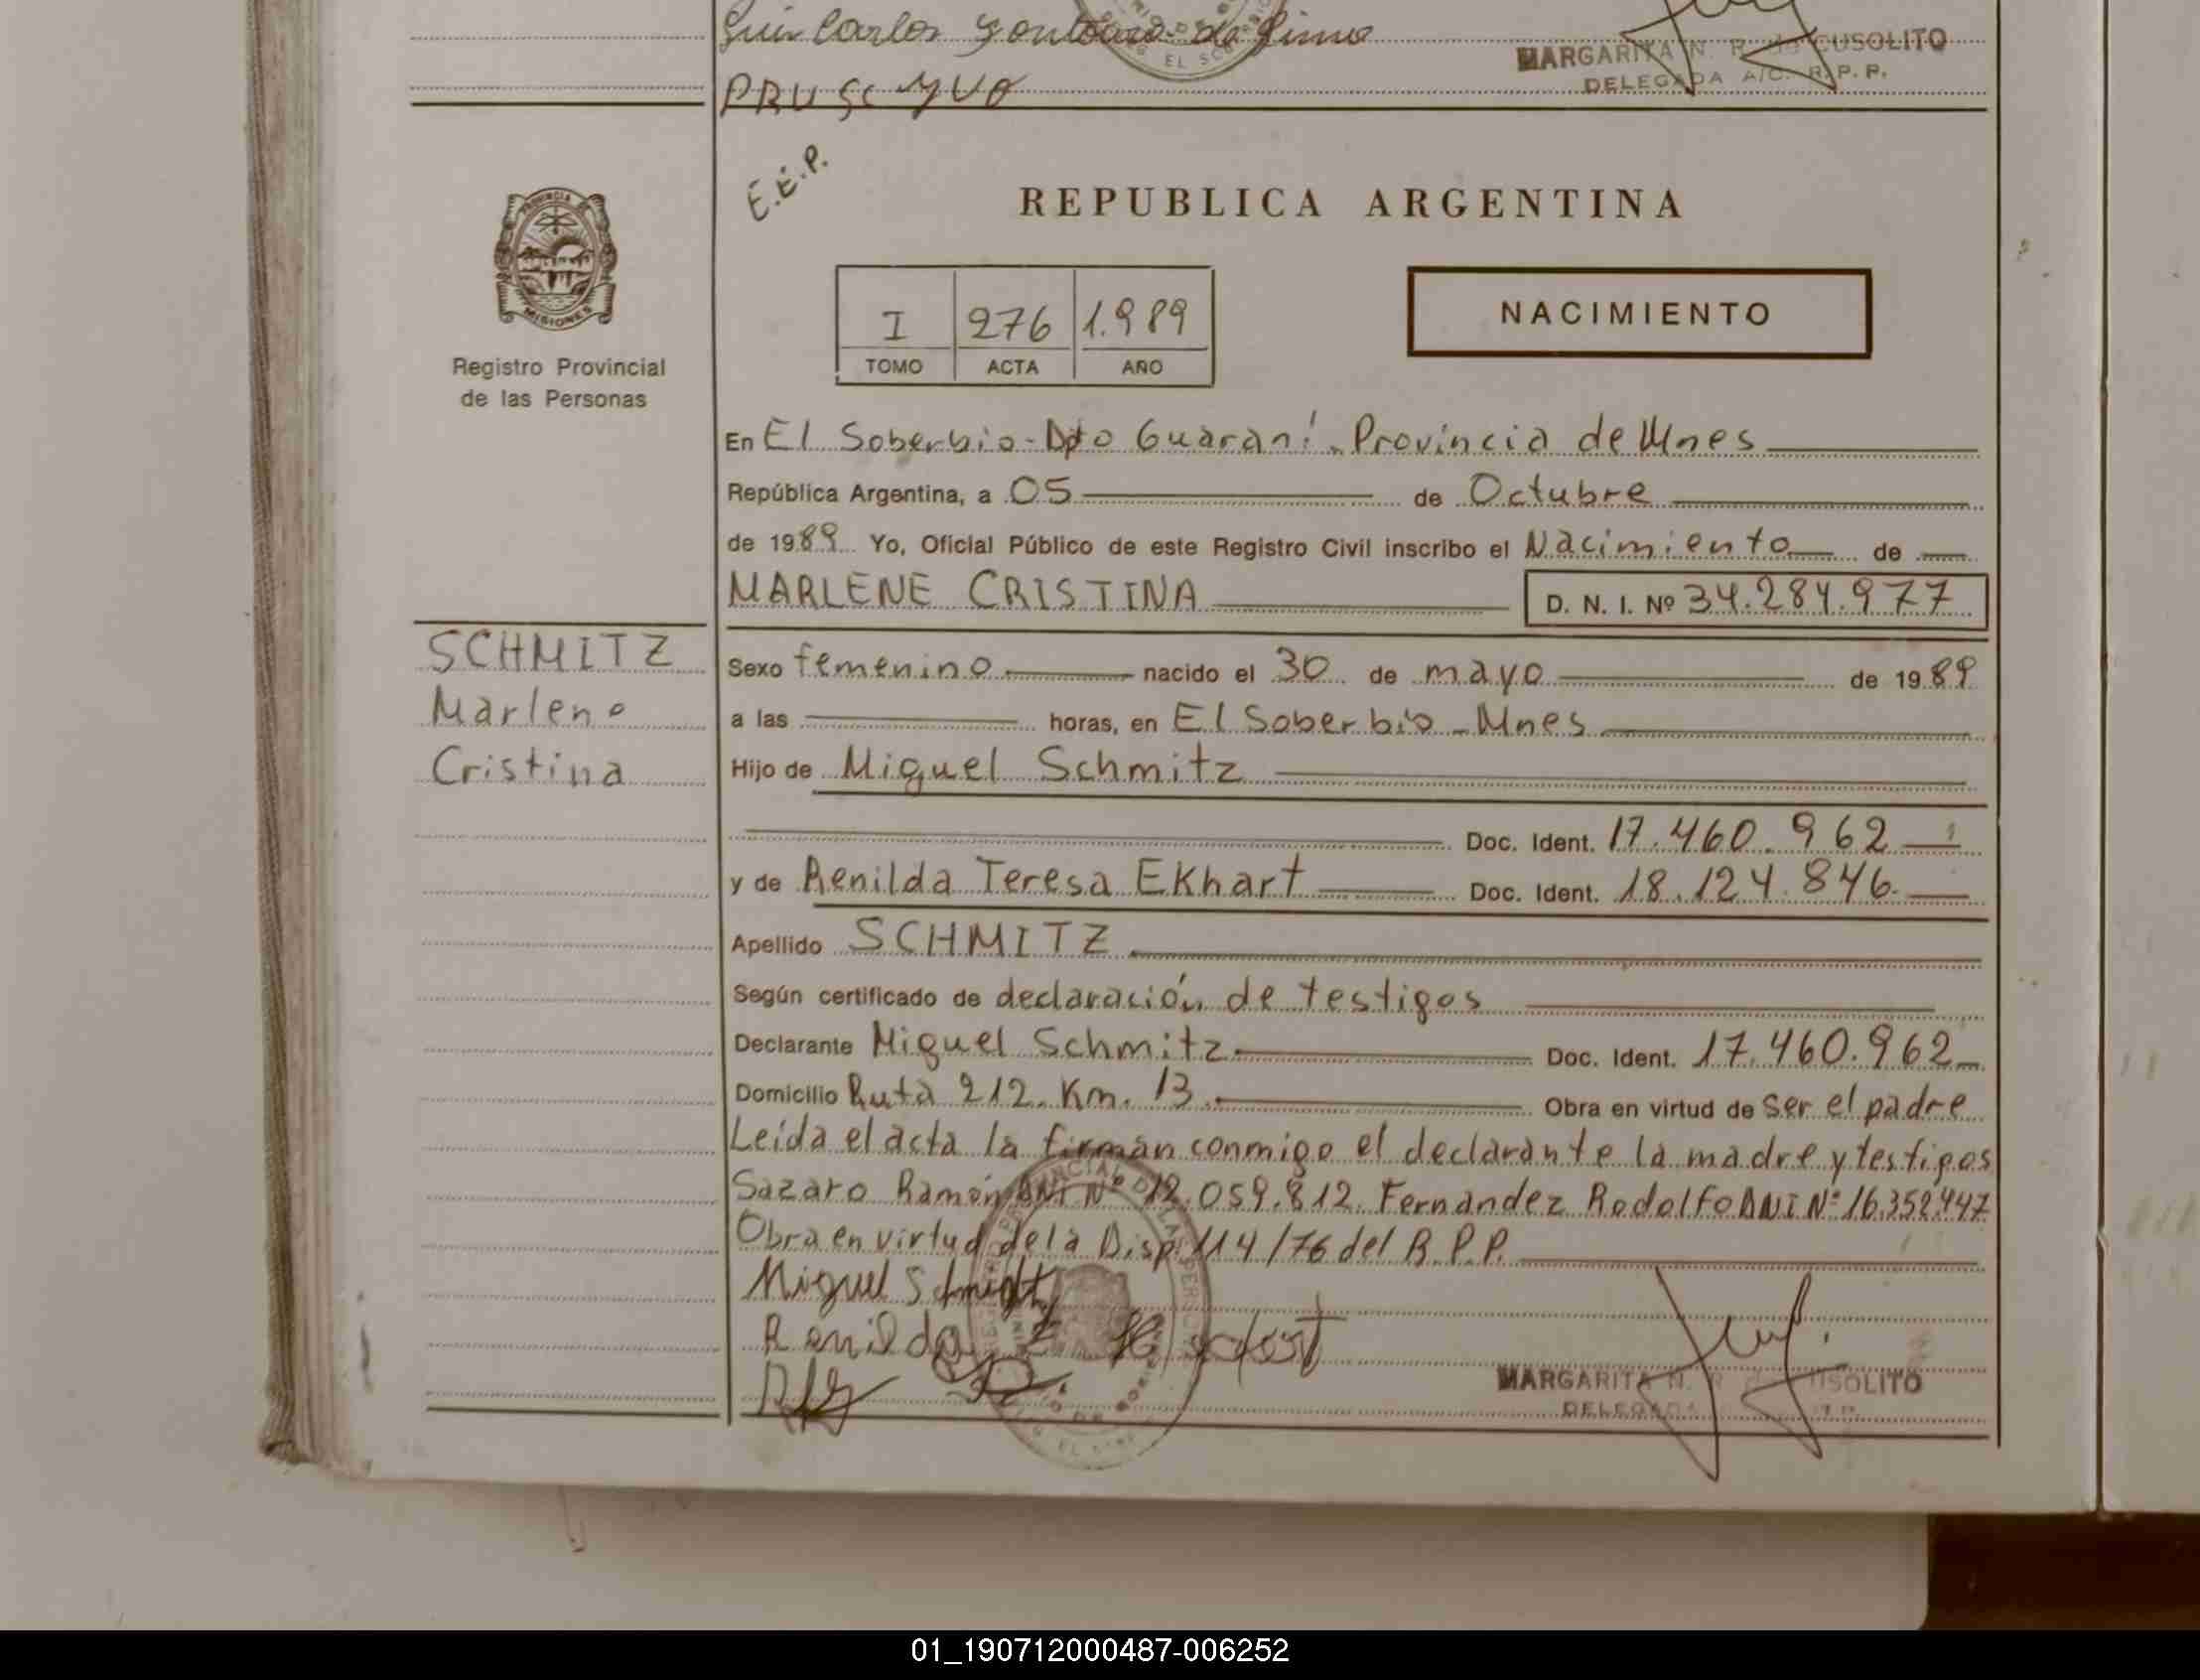 Luis Carlos
MARGARITA N. R. de CUSOLITO
DELEGADA A/C. R. P. P.
E.E.P.
REPUBLICA ARGENTINA
PROVINCIA DE
MISIONES
Registro Provincial
de las Personas
I 276 1.989
TOMO ACTA AÑO
NACIMIENTO
En El Soberbio - Dpto Guaraní - Provincia de Mnes
República Argentina, a 05 de Octubre
de 1989 Yo, Oficial Público de este Registro Civil inscribo el Nacimiento de
MARLENE CRISTINA D. N. I. Nº 34.284.977
SCHMITZ
Marlene
Cristina
Sexo femenino nacido el 30 de mayo de 1989
a las horas, en El Soberbio - Mnes
Hijo de Miguel Schmitz
Doc. Ident. 17.460.962
y de Renilda Teresa Ekhart Doc. Ident. 18.124.846.
Apellido SCHMITZ
Según certificado de declaración de testigos
Declarante Miguel Schmitz Doc. Ident. 17.460.962
Domicilio Ruta 212. Km. 13. Obra en virtud de ser el padre
Leída el acta la firman conmigo el declarante la madre y testigos
Sazaro Ramón DNI Nº 12.059.812. Fernandez Rodolfo DNI Nº 16.352.447
Obra en virtud de la Disp. 114/76 del R.P.P.
Miguel
Renilda
MARGARITA N. R USOLITO
DELEGADA
01_190712000487-006252